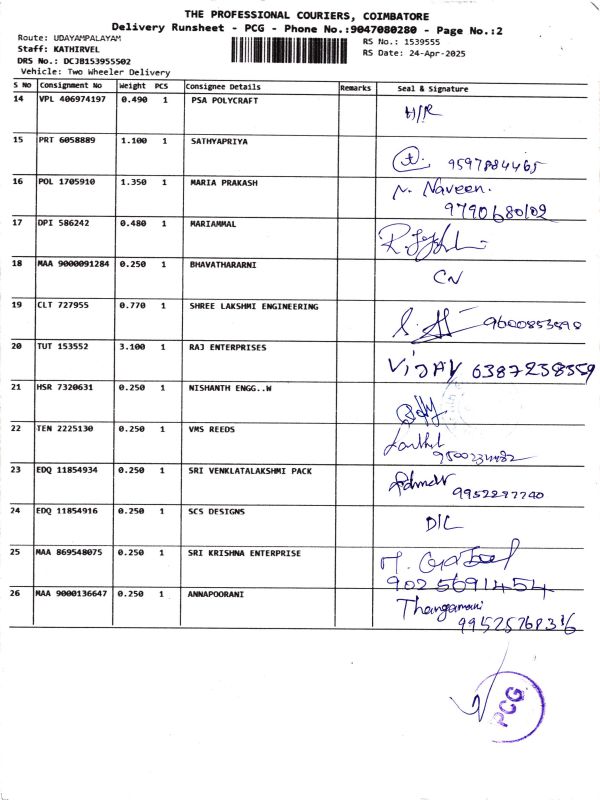 THE PROFESSIONAL COURIERS, COIMBATORE
Delivery Runsheet - PCG - Phone No.:9047080280 - Page No.:2
Route: UDAYAMPALAYAM
RS No.: 1539555
Staff: KATHIRVEL
RS Date: 24-Apr-2025
DRS No.: DCJB153955502
Vehicle: Two Wheeler Delivery
S No Consignment No Weight PCS Consignee Details Remarks Seal & Signature
14 VPL 406974197 0.490 1 PSA POLYCRAFT H/R
15 PRT 6058889 1.100 1 SATHYAPRIYA 9597884465
16 POL 1705910 1.350 1 MARIA PRAKASH N. Naveen.
9790680102
17 DPI 586242 0.480 1 MARIAMMAL
18 MAA 9000091284 0.250 1 BHAVATHARARNI CN
19 CLT 727955 0.770 1 SHREE LAKSHMI ENGINEERING 9600853898
20 TUT 153552 3.100 1 RAJ ENTERPRISES VIJAY 6387238559
21 HSR 7320631 0.250 1 NISHANTH ENGG..W
22 TEN 2225130 0.250 1 VMS REEDS
23 EDQ 11854934 0.250 1 SRI VENKLATALAKSHMI PACK
9952297740
24 EDQ 11854916 0.250 1 SCS DESIGNS D/L
25 MAA 869548075 0.250 1 SRI KRISHNA ENTERPRISE
9025691454
26 MAA 9000136647 0.250 1 ANNAPOORANI Thangamani
9952576836
PCG